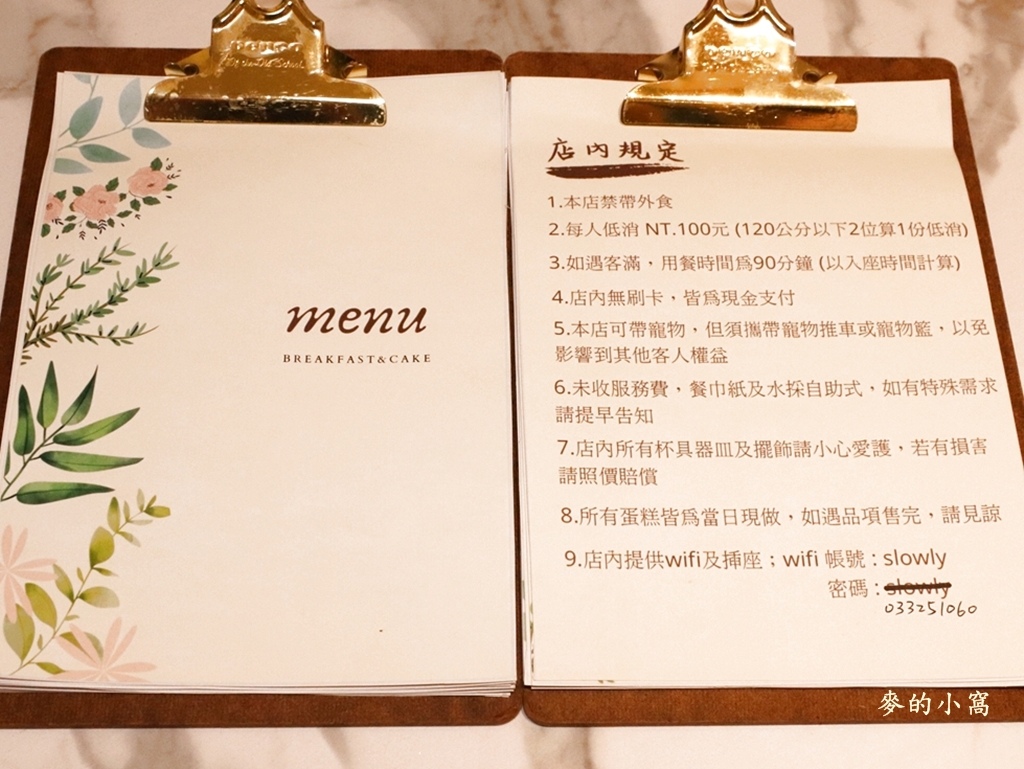 menu
BREAKFAST&CAKE
店內規定
1.本店禁帶外食
2.每人低消 NT.100元 (120公分以下2位算1份低消)
3.如遇客滿，用餐時間為90分鐘 (以入座時間計算)
4.店內無刷卡，皆為現金支付
5.本店可帶寵物，但須攜帶寵物推車或寵物籃，以免
影響到其他客人權益
6.未收服務費，餐巾紙及水採自助式，如有特殊需求
請提早告知
7.店內所有杯具器皿及擺飾請小心愛護，若有損害
請照價賠償
8.所有蛋糕皆為當日現做，如遇品項售完，請見諒
9.店內提供wifi及插座；wifi 帳號：slowly
密碼：slowly
033251060
麥的小窩